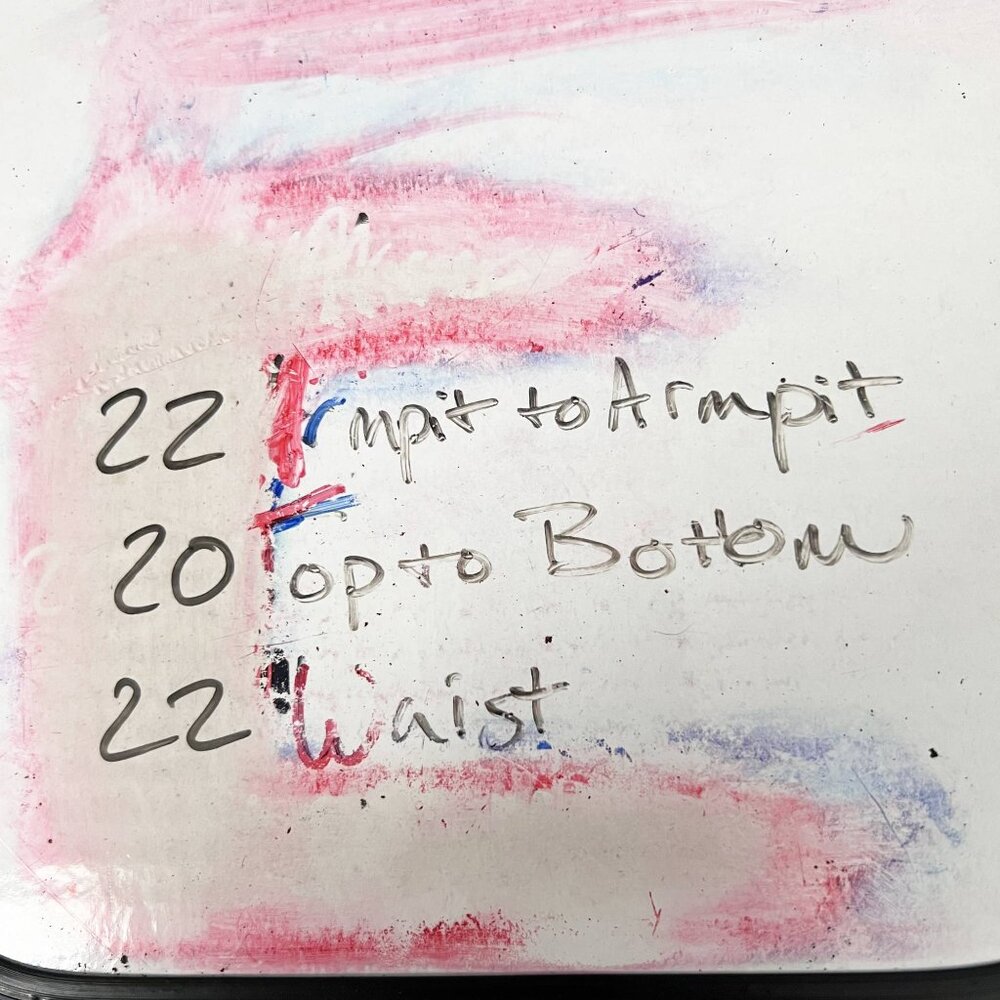 22 " Armpit to Armpit
20 " Top to Bottom
22 " Waist